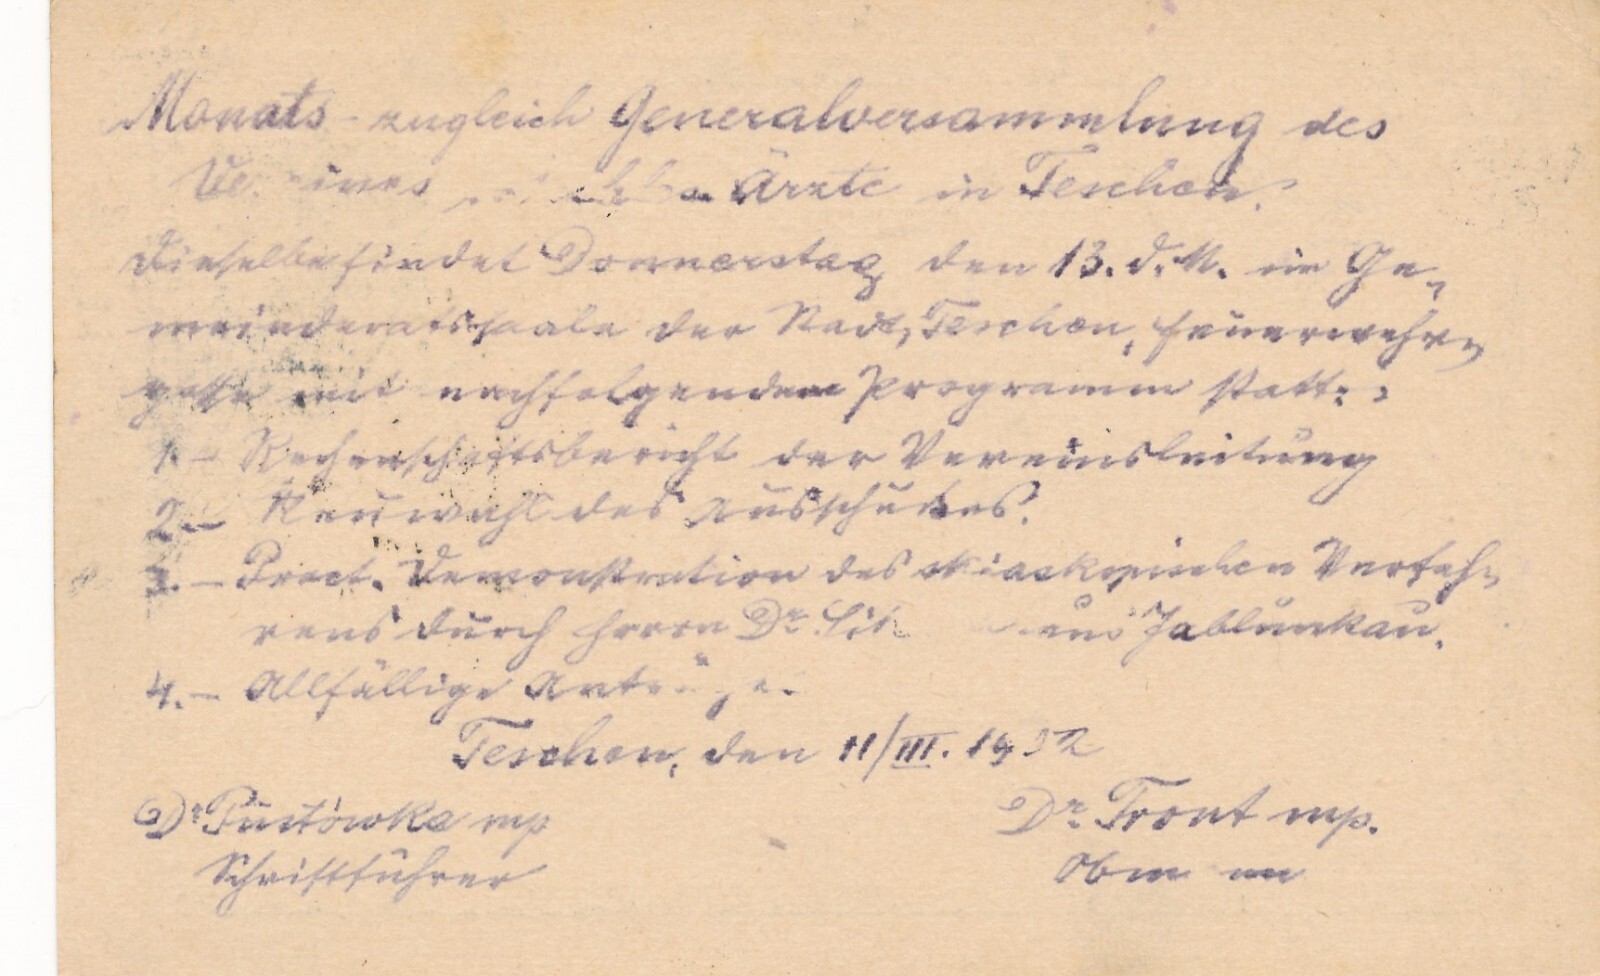 Monats- zugleich Generalversammlung des
Vereines Ärzte in Teschen.
Dieselbe findet Donnerstag den 13. d. M. im Ge-
meinderatssaale der Stadt Teschen, Feuerwehr-
gasse mit nachfolgendem Programm statt:
1.- Rechenschaftsbericht der Vereinsleitung
2.- Neuwahl des Ausschußes.
3.- Pract. Demonstration des skiaskopischen Verfah-
rens durch Herrn Dr. aus Jablunkau.
4.- Allfällige Anträge.
Teschen, den 11/III.
Dr. Pustówka mp
Schriftführer
Dr. Tront mp.
Obmann